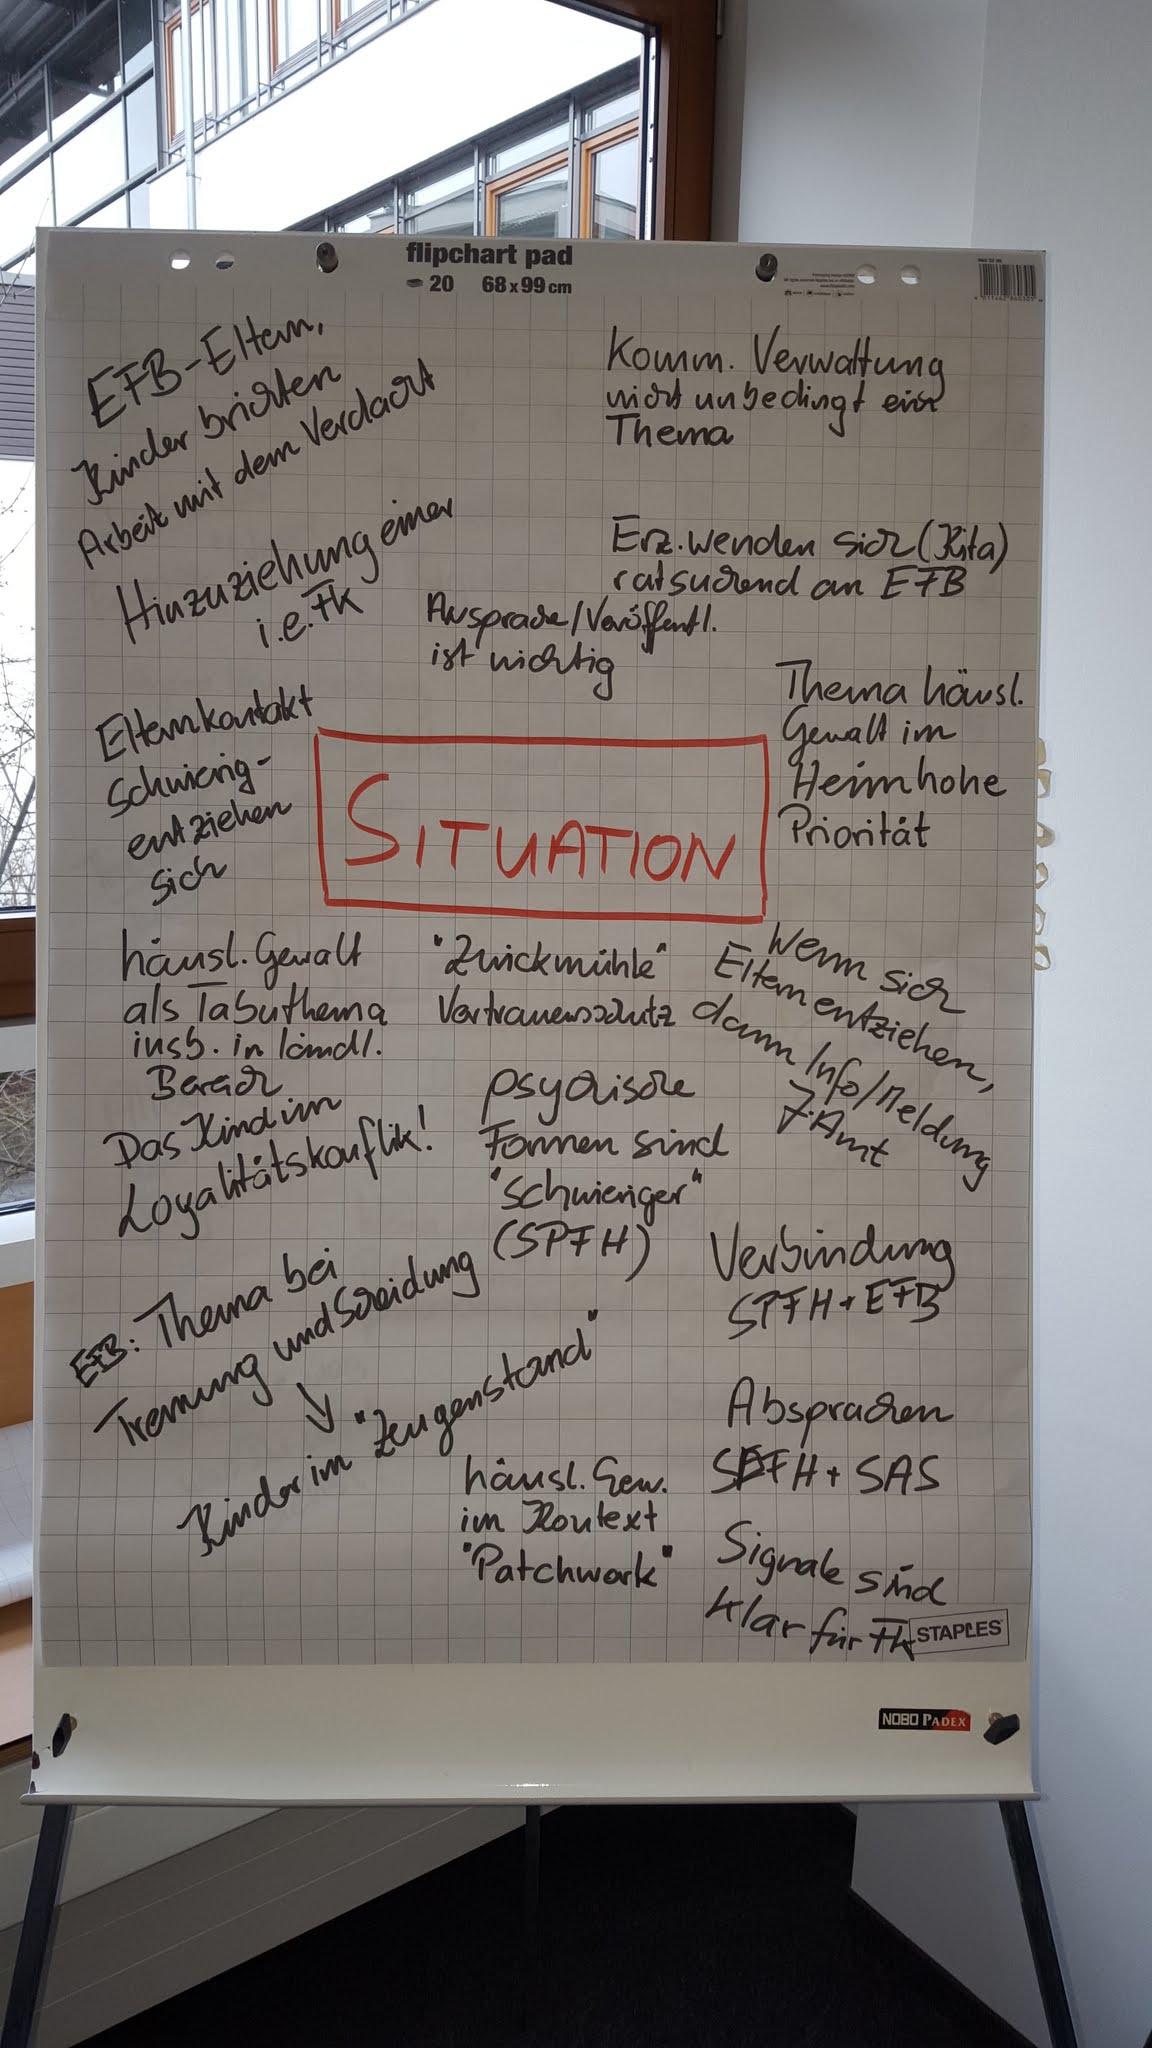 flipchart pad
20 68 x 99 cm
EFB-Eltern,
Kinder brichten
Arbeit mit dem Verdacht
Hinzuziehung einer
i.e.Fk
Komm. Verwaltung
nicht unbedingt ein
Thema
Erz. wenden sich (Kita)
ratsuchend an EFB
Aussprache/Veröffentl.
ist wichtig
Thema häusl.
Gewalt im
Heim hohe
Priorität
Elternkontakt
schwierig-
entziehen
sich
SITUATION
häusl. Gewalt
als Tabuthema
insb. in ländl.
Bereich
"Zwickmühle"
Vertrauensschutz
Wenn sich
Eltern entziehen,
dann Info/Meldung
J.Amt
Das Kind im
Loyalitätskonflik!
psychische
Formen sind
"schwieriger"
(SPFH)
Verbindung
SPFH + EFB
EFB: Thema bei
Trennung und Scheidung
↓
Kinder im "Zeugenstand"
Absprachen
SPFH + SAS
häusl. Gew.
im Kontext
"Patchwork"
Signale sind
klar für Fk
STAPLES
NOBO PADEX